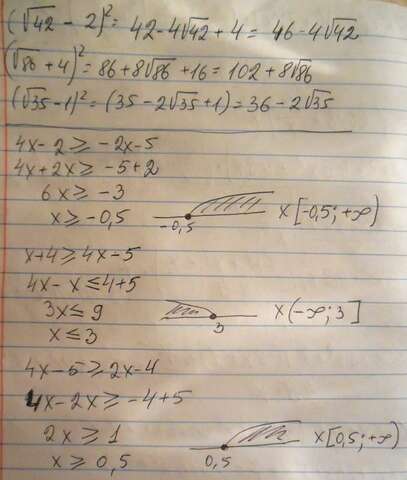 (√42 - 2)² = 42 - 4√42 + 4 = 46 - 4√42
(√86 + 4)² = 86 + 8√86 + 16 = 102 + 8√86
(√35 - 1)² = (35 - 2√35 + 1) = 36 - 2√35
4x - 2 ≥ -2x - 5
4x + 2x ≥ -5 + 2
6x ≥ -3
x ≥ -0,5 -0,5 x [-0,5; +∞)
x + 4 ≥ 4x - 5
4x - x ≤ 4 + 5
3x ≤ 9 3 x (-∞; 3]
x ≤ 3
4x - 5 ≥ 2x - 4
4x - 2x ≥ -4 + 5
2x ≥ 1 x [0,5; +∞)
x ≥ 0,5 0,5